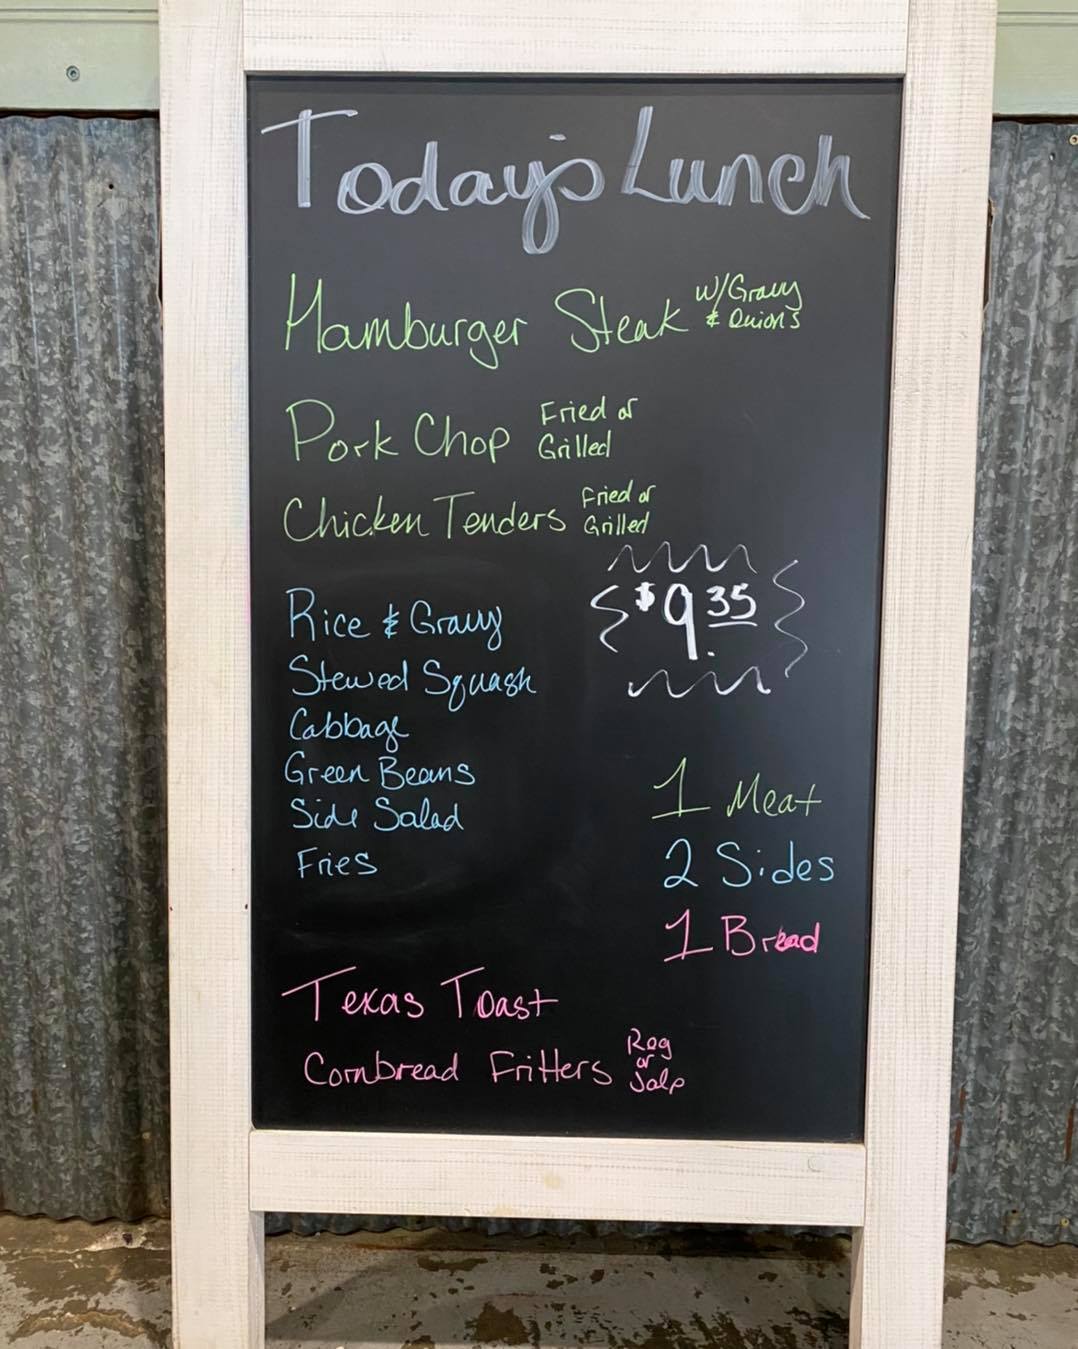 Today's Lunch
Hamburger Steak w/ Gravy
& Onions
Pork Chop Fried or
Grilled
Chicken Tenders Fried or
Grilled
$9.35
Rice & Gravy
Stewed Squash
Cabbage
Green Beans
Side Salad
Fries
1 Meat
2 Sides
1 Bread
Texas Toast
Cornbread Fritters Reg
or
Jalp